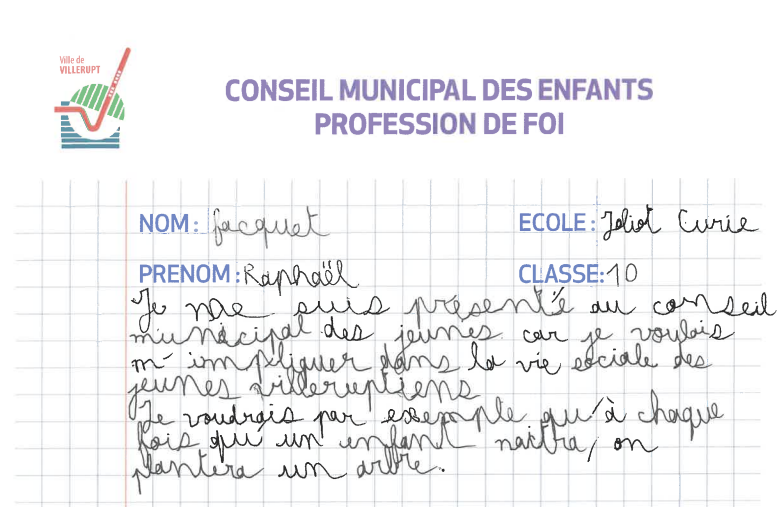 Ville de
VILLERUPT
CONSEIL MUNICIPAL DES ENFANTS
PROFESSION DE FOI
NOM : facquet
ECOLE : Joliot Curie
PRENOM : Raphaël
CLASSE: 10
Je me suis présenté au conseil
municipal des jeunes car je voulais
m'impliquer dans la vie sociale des
jeunes villeruptiens
Je voudrais par exemple qu'à chaque
fois qu'un enfant naitra, on
plantera un arbre.